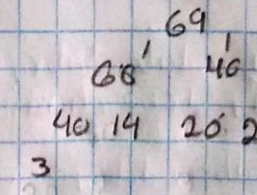 69
66 46
40 14 20 2
3